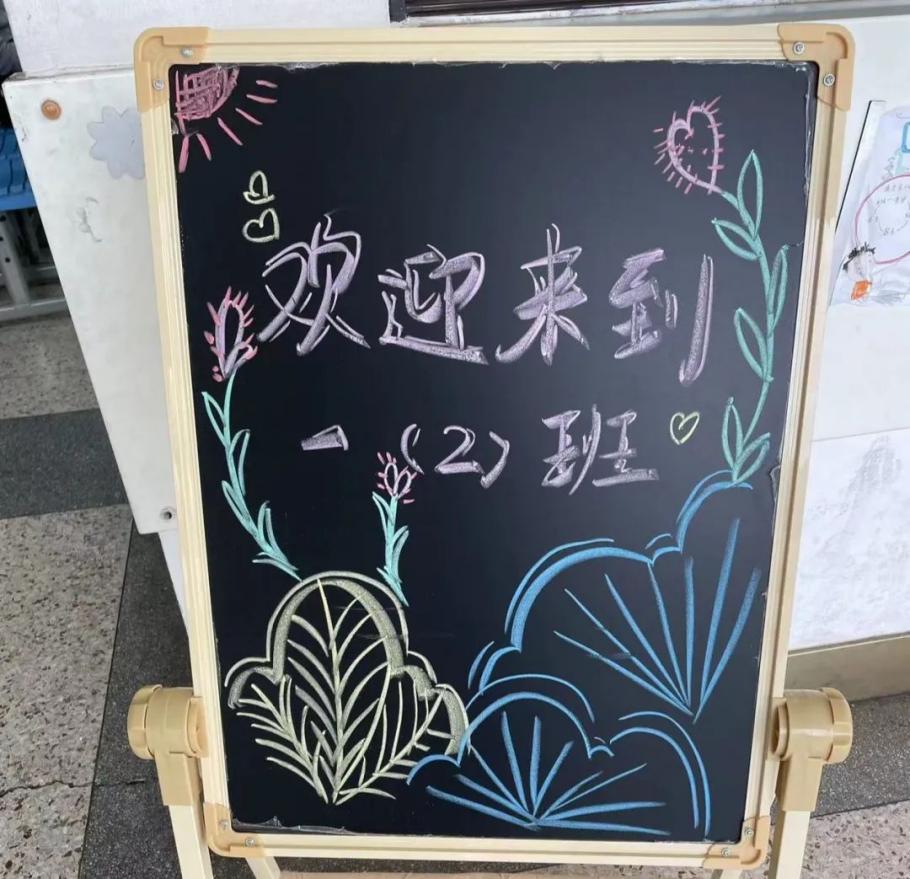 欢迎来到
一（2）班